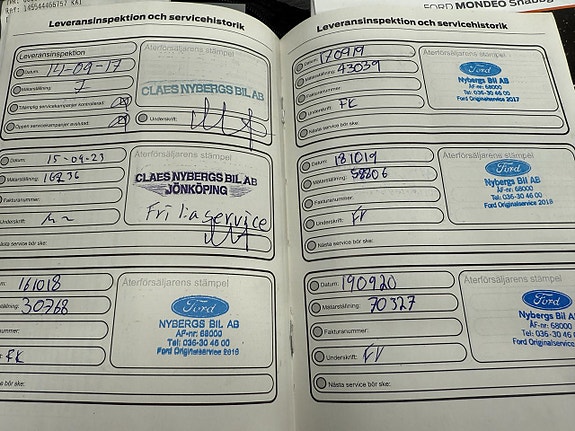 Ref: 145544466757 KA1
FORD MONDEO Snabbg
Leveransinspektion och servicehistorik
Leveransinspektion
Återförsäljarens stämpel
Datum: 14-09-17
Mätarställning:
CLAES NYBERGS BIL AB
Tillämplig servicekampanjer kontrollerad:
Öppen servicekampanjer avslutad:
Underskrift:
Datum: 15-09-23
Återförsäljarens stämpel
Mätarställning: 16236
CLAES NYBERGS BIL AB
JÖNKÖPING
Fakturanummer:
Fri 1:a service
Underskrift:
Nästa service bör ske:
161018
Återförsäljarens stämpel
ställning: 30768
Ford
nummer:
NYBERGS BIL AB
ÅF-nr: 68000
Tel: 036-30 46 00
Ford Originalservice 2016
FK
service bör ske:
Leveransinspektion och servicehistorik
Datum: 170919
Återförsäljarens stämpel
Mätarställning: 43039
Ford
Fakturanummer:
Nybergs Bil AB
ÅF-nr: 68000
Tel: 036-30 46 00
Ford Originalservice 2017
Underskrift: FK
Nästa service bör ske:
Datum: 181019
Återförsäljarens stämpel
Mätarställning: 58806
Ford
Fakturanummer:
Nybergs Bil AB
ÅF-nr: 68000
Tel: 036-30 46 00
Ford Originalservice 2018
Underskrift: FK
Nästa service bör ske:
Datum: 190920
Återförsäljarens stämpel
Mätarställning: 70327
Ford
Fakturanummer:
Nybergs Bil AB
ÅF-nr: 68000
Tel: 036-30 46 00
Ford Originalservice
Underskrift: FK
Nästa service bör ske: